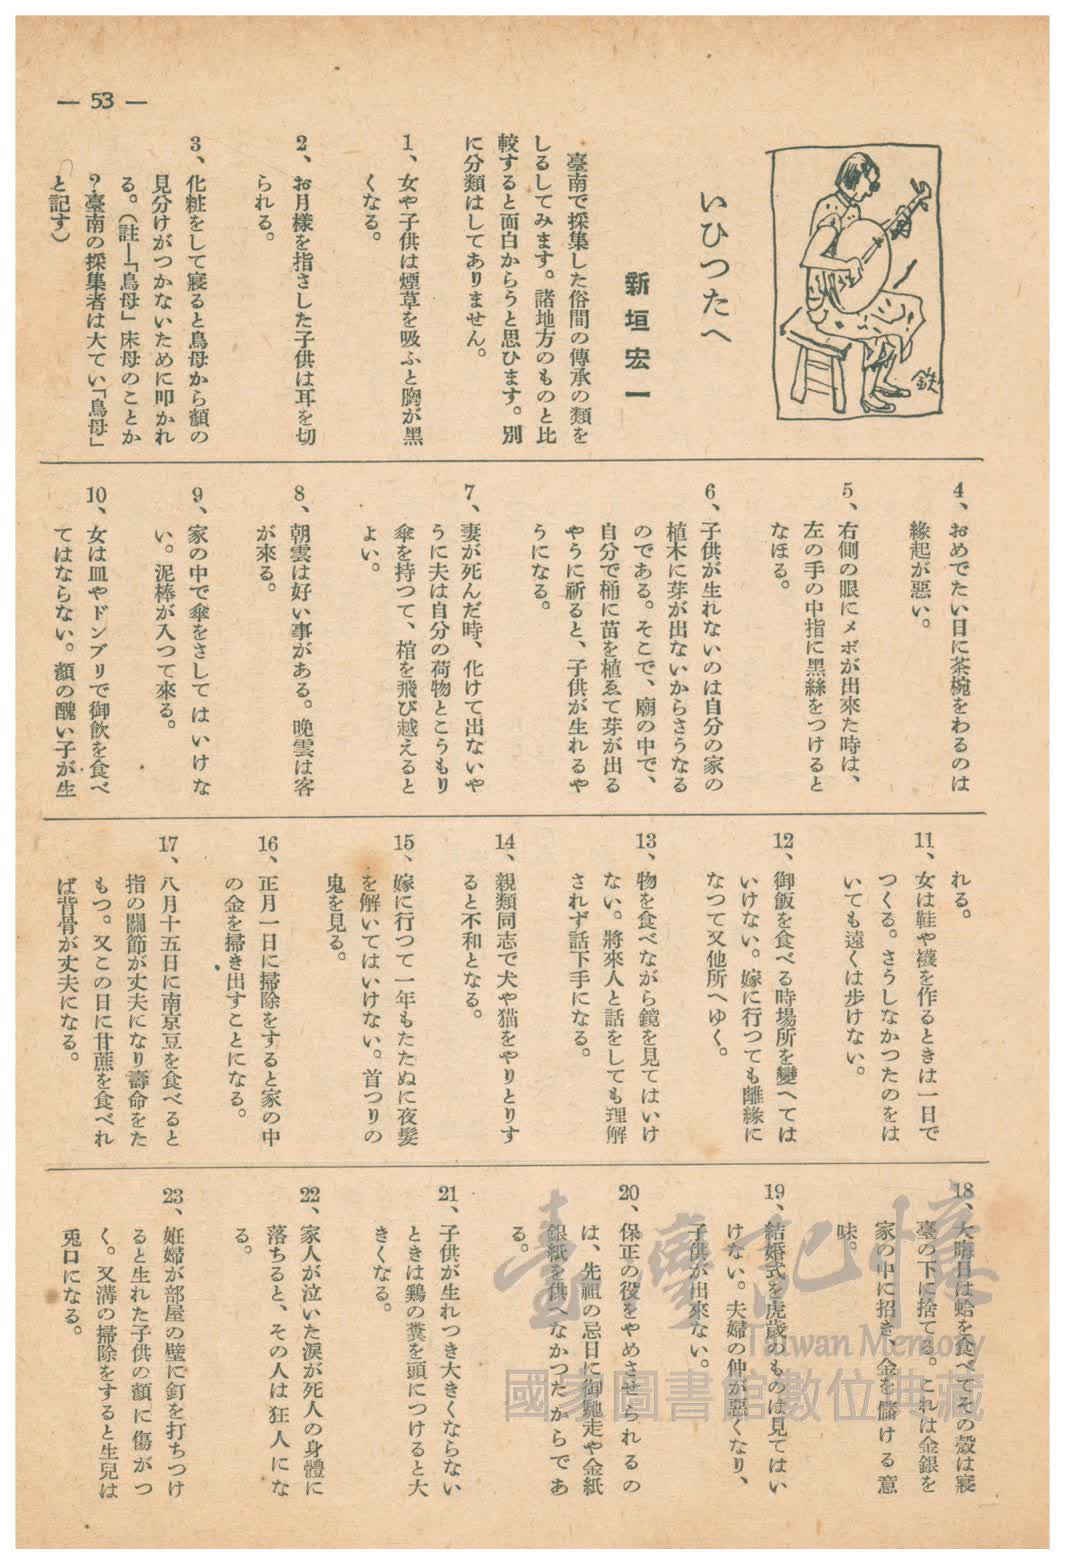 — 53 —
鉄
いひつたへ
新垣宏一
臺南で採集した俗間の傳承の類を
しるしてみます。諸地方のものと比
較すると面白からうと思ひます。別
に分類はしてありません。
1、女や子供は煙草を吸ふと胸が黑
くなる。
2、お月樣を指さした子供は耳を切
られる。
3、化粧をして寢ると鳥母から顏の
見分けがつかないために叩かれ
る。(註—「鳥母」床母のことか
?臺南の採集者は大てい「鳥母」
と記す)
4、おめでたい日に茶椀をわるのは
緣起が惡い。
5、右側の眼にメボが出來た時は、
左の手の中指に黑絲をつけると
なほる。
6、子供が生れないのは自分の家の
植木に芽が出ないからさうなる
のである。そこで、廟の中で、
自分で桶に苗を植ゑて芽が出る
やうに祈ると、子供が生れるや
うになる。
7、妻が死んだ時、化けて出ないや
うに夫は自分の荷物とこうもり
傘を持つて、棺を飛び越えると
よい。
8、朝雲は好い事がある。晩雲は客
が來る。
9、家の中で傘をさしてはいけな
い。泥棒が入つて來る。
10、女は皿やドンブリで御飮を食べ
てはならない。顏の醜い子が生
れる。
11、女は鞋や襪を作るときは一日で
つくる。さうしなかつたのをは
いても遠くは步けない。
12、御飯を食べる時場所を變へては
いけない。嫁に行つても離緣に
なつて又他所へゆく。
13、物を食べながら鏡を見てはいけ
ない。將來人と話をしても理解
されず話下手になる。
14、親類同志で犬や猫をやりとりす
ると不和となる。
15、嫁に行つて一年もたたぬに夜髮
を解いてはいけない。首つりの
鬼を見る。
16、正月一日に掃除をすると家の中
の金を掃き出すことになる。
17、八月十五日に南京豆を食べると
指の關節が丈夫になり壽命をた
もつ。又この日に甘蔗を食べれ
ば背骨が丈夫になる。
18、大晦日は蛤を食べてその殼は寢
臺の下に捨てる。これは金銀を
家の中に招き、金を儲ける意
味。
19、結婚式を虎歲のものは見てはい
けない。夫婦の仲が惡くなり、
子供が出來ない。
20、保正の役をやめさせられるの
は、先祖の忌日に御馳走や金紙
銀紙を供へなかつたからであ
る。
21、子供が生れつき大きくならない
ときは鷄の糞を頭につけると大
きくなる。
22、家人が泣いた淚が死人の身體に
落ちると、その人は狂人にな
る。
23、姙婦が部屋の壁に釘を打ちつけ
ると生れた子供の顏に傷がつ
く。又溝の掃除をすると生兒は
兎口になる。
臺灣記憶
Taiwan Memory
國家圖書館數位典藏